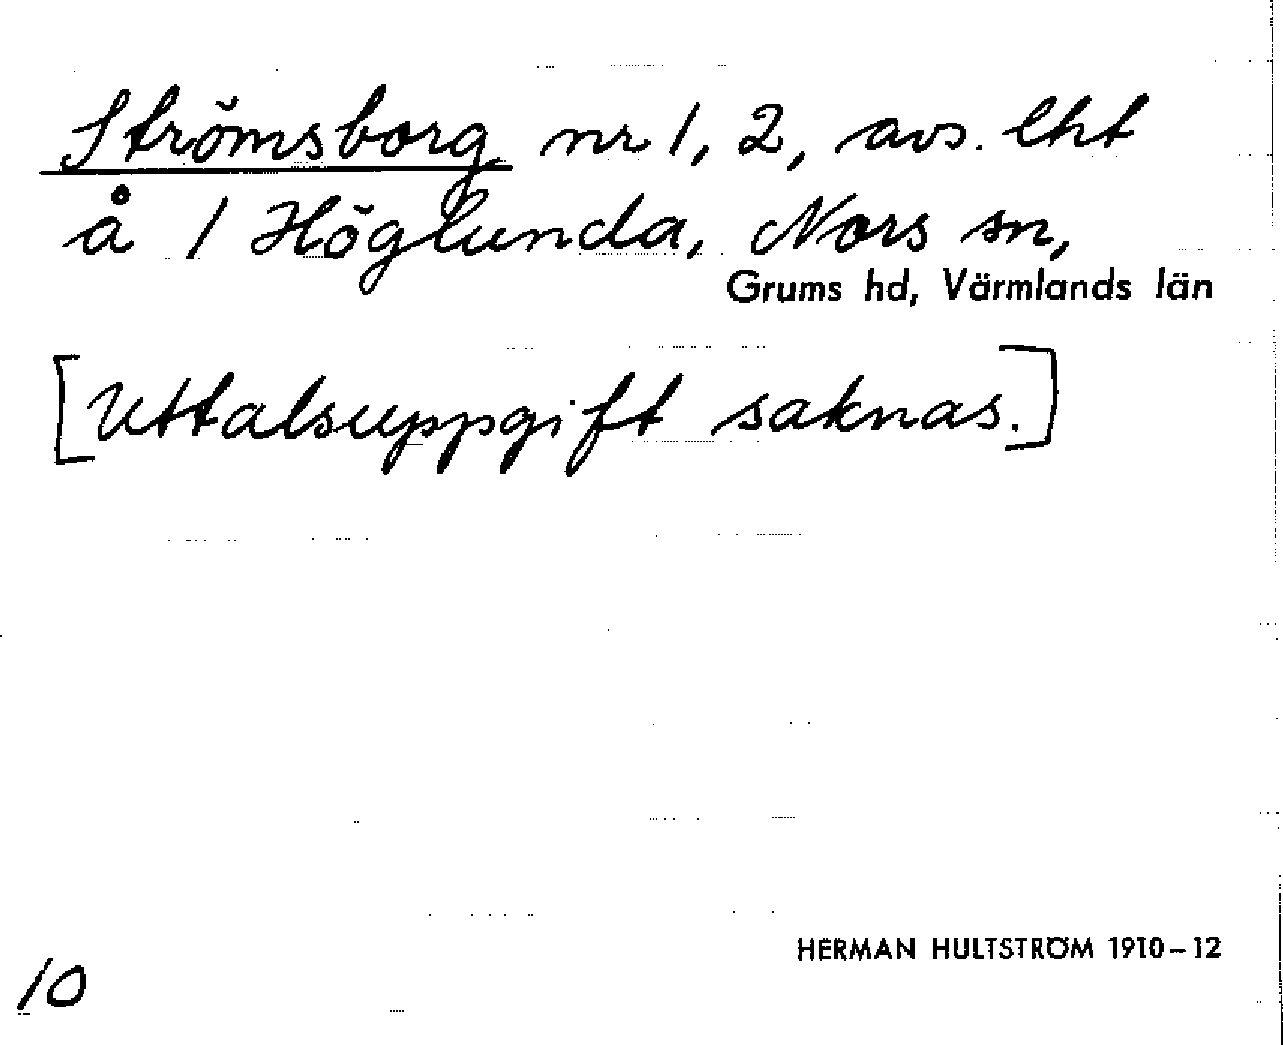 Strömsborg nr 1, 2, avs. lht
å 1 Höglunda, Nors sn,
Grums hd, Värmlands län
[Uttalsuppgift saknas.]
HERMAN HULTSTRÖM 1910–12
10